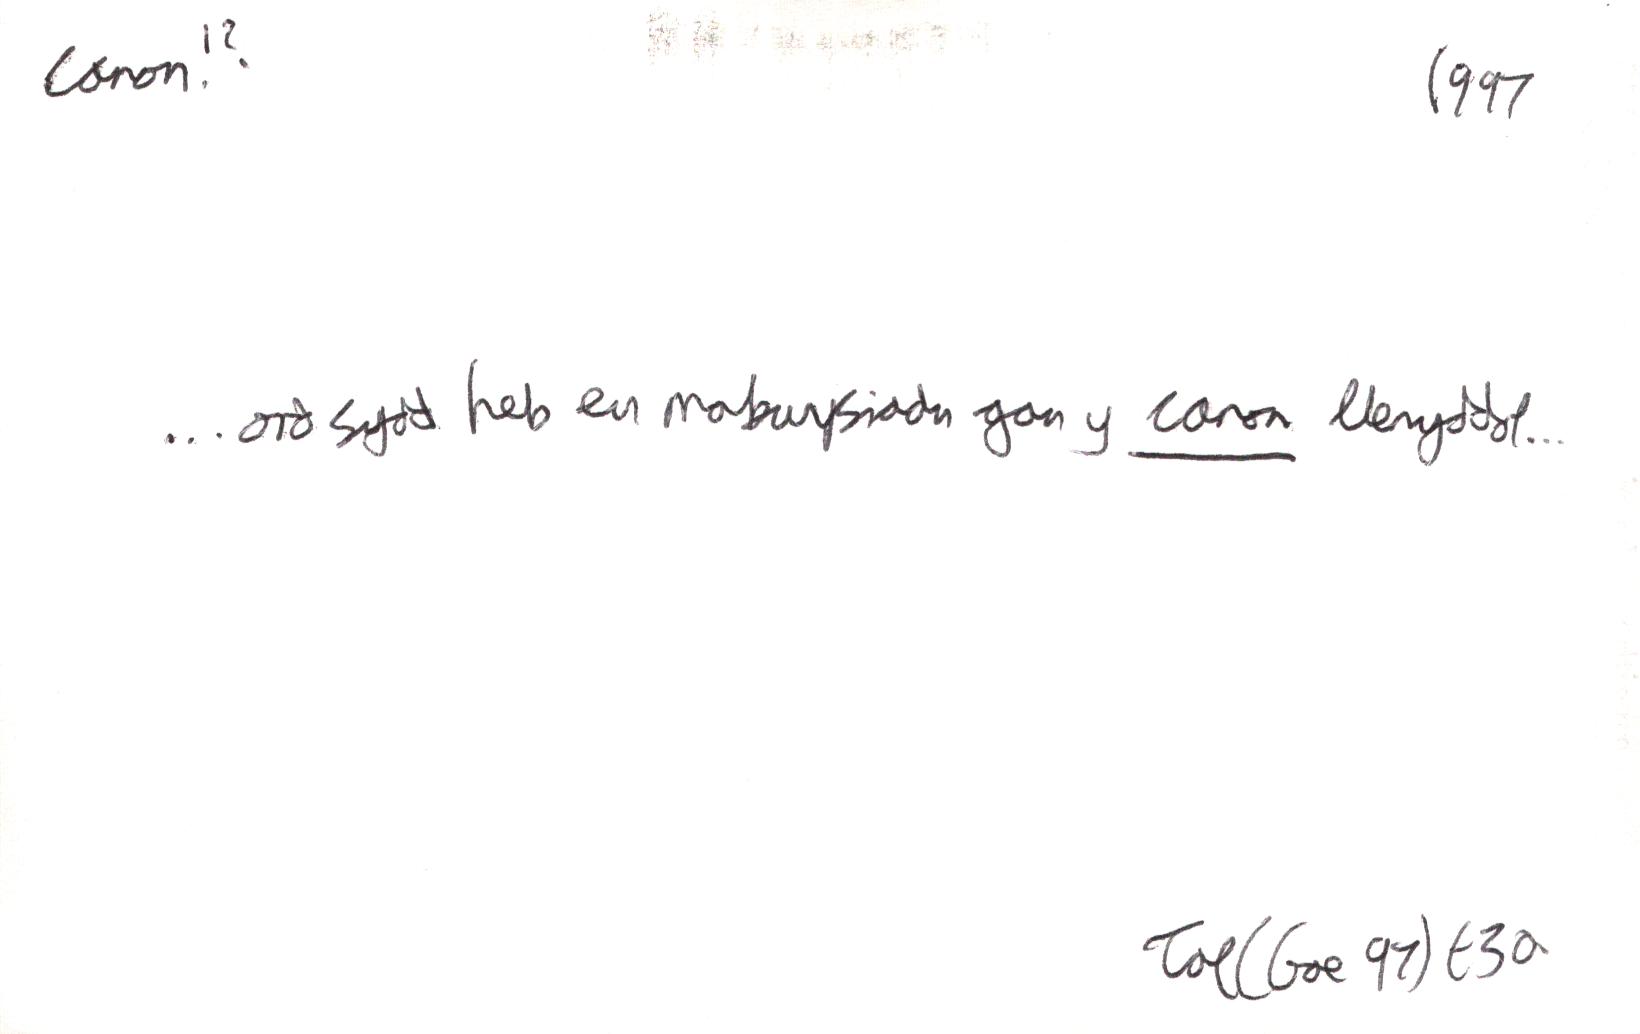 canon!? 1997
... ond sydd heb eu mabwysiadu gan y canon llenyddol...
Tal (Gae 97) t3a